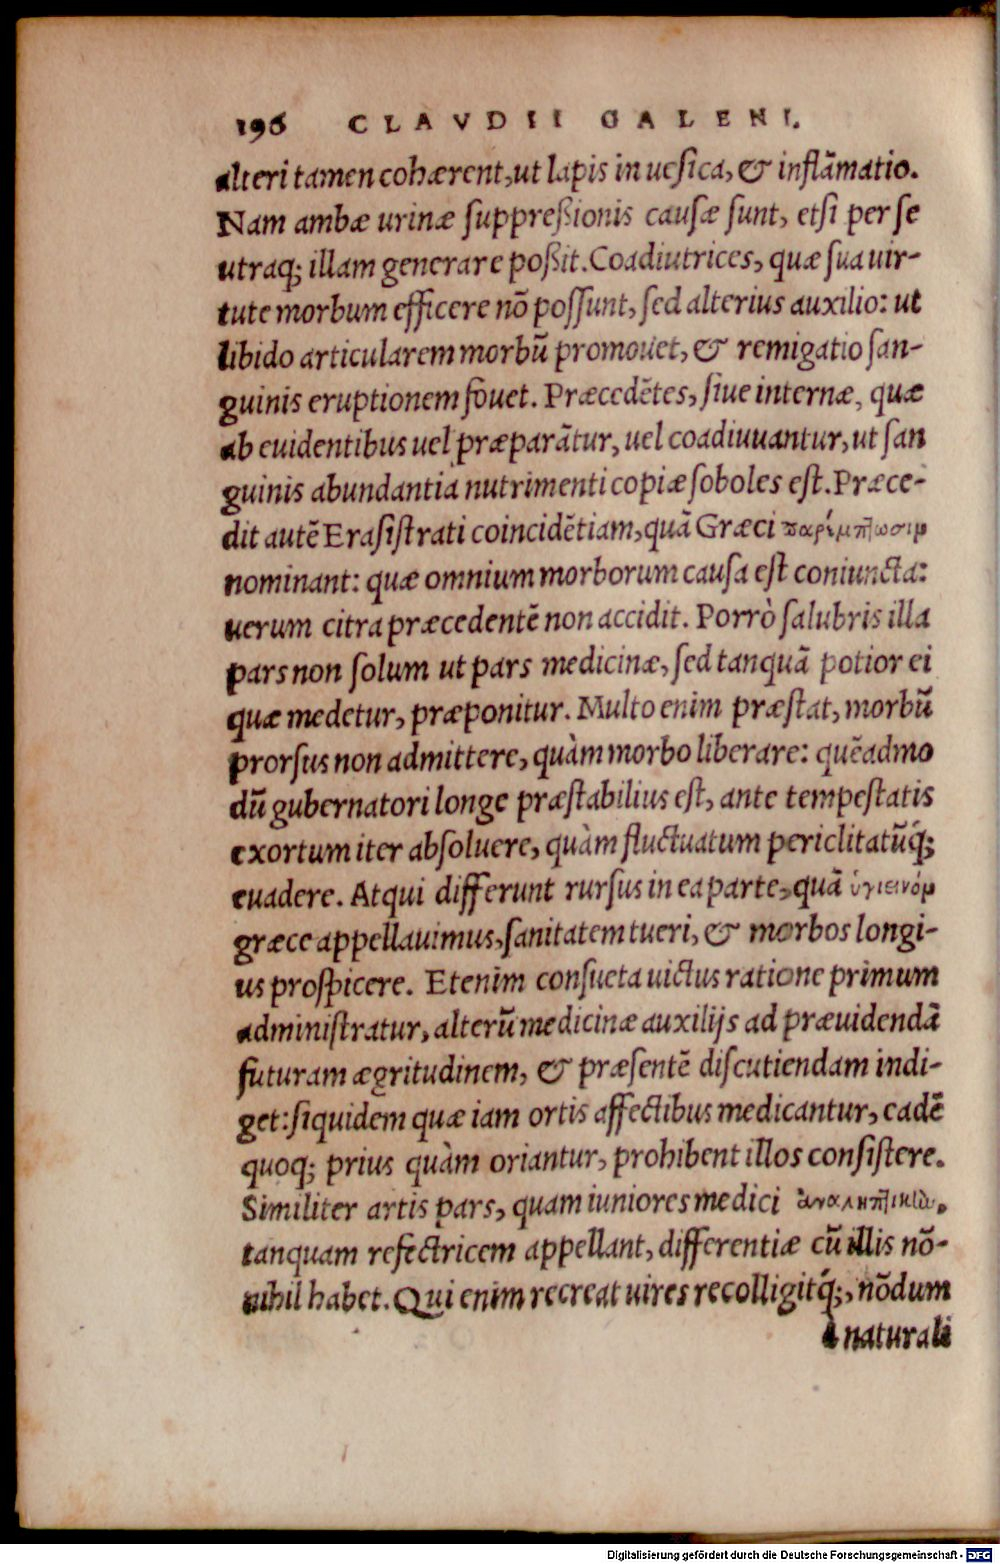 196 CLAVDII GALENI.
alteri tamen cohærent, ut lapis in uesica, & inflāmatio.
Nam ambæ urinæ suppreßionis causæ sunt, etsi per se
utraq; illam generare poßit. Coadiutrices, quæ sua uir-
tute morbum efficere nō possunt, sed alterius auxilio: ut
libido articularem morbū promouet, & remigatio san-
guinis eruptionem fouet. Præcedētes, siue internæ, quæ
ab euidentibus uel præparātur, uel coadiuuantur, ut san
guinis abundantia nutrimenti copiæ soboles est. Præce-
dit autē Erasistrati coincidētiam, quā Græci παρέμπτωσιμ
nominant: quæ omnium morborum causa est coniuncta:
uerum citra præcedentē non accidit. Porrò salubris illa
pars non solum ut pars medicinæ, sed tanquā potior ei
quæ medetur, præponitur. Multo enim præstat, morbū
prorsus non admittere, quàm morbo liberare: quēadmo
dū gubernatori longe præstabilius est, ante tempestatis
exortum iter absoluere, quàm fluctuatum periclitatūq́;
euadere. Atqui differunt rursus in ea parte, quā ὑγιεινόμ
græce appellauimus, sanitatem tueri, & morbos longi-
us prospicere. Etenim consueta uictus ratione primum
administratur, alterū medicinæ auxilijs ad præuidendā
futuram ægritudinem, & præsentē discutiendam indi-
get: siquidem quæ iam ortis affectibus medicantur, eadē
quoq; prius quàm oriantur, prohibent illos consistere.
Similiter artis pars, quam iuniores medici
tanquam refectricem appellant, differentiæ cū illis nō-
nihil habet. Qui enim recreat uires recolligitq́;, nōdum
à naturali
Digitalisierung gefördert durch die Deutsche Forschungsgemeinschaft - DFG